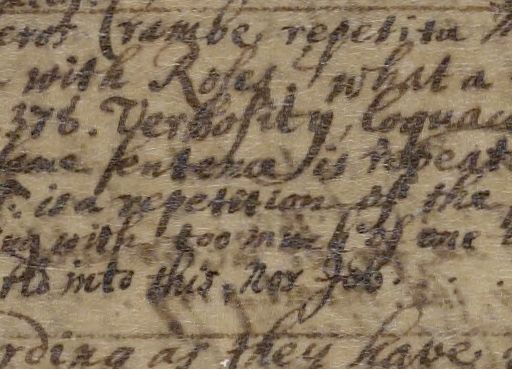 eror Crambe repetita
with Roses, what a
378. Verbosity, Loquac
same sentence is repeate
it a repetition of the
ing with too much of one
rld into this, Nor Job.
rding as they have